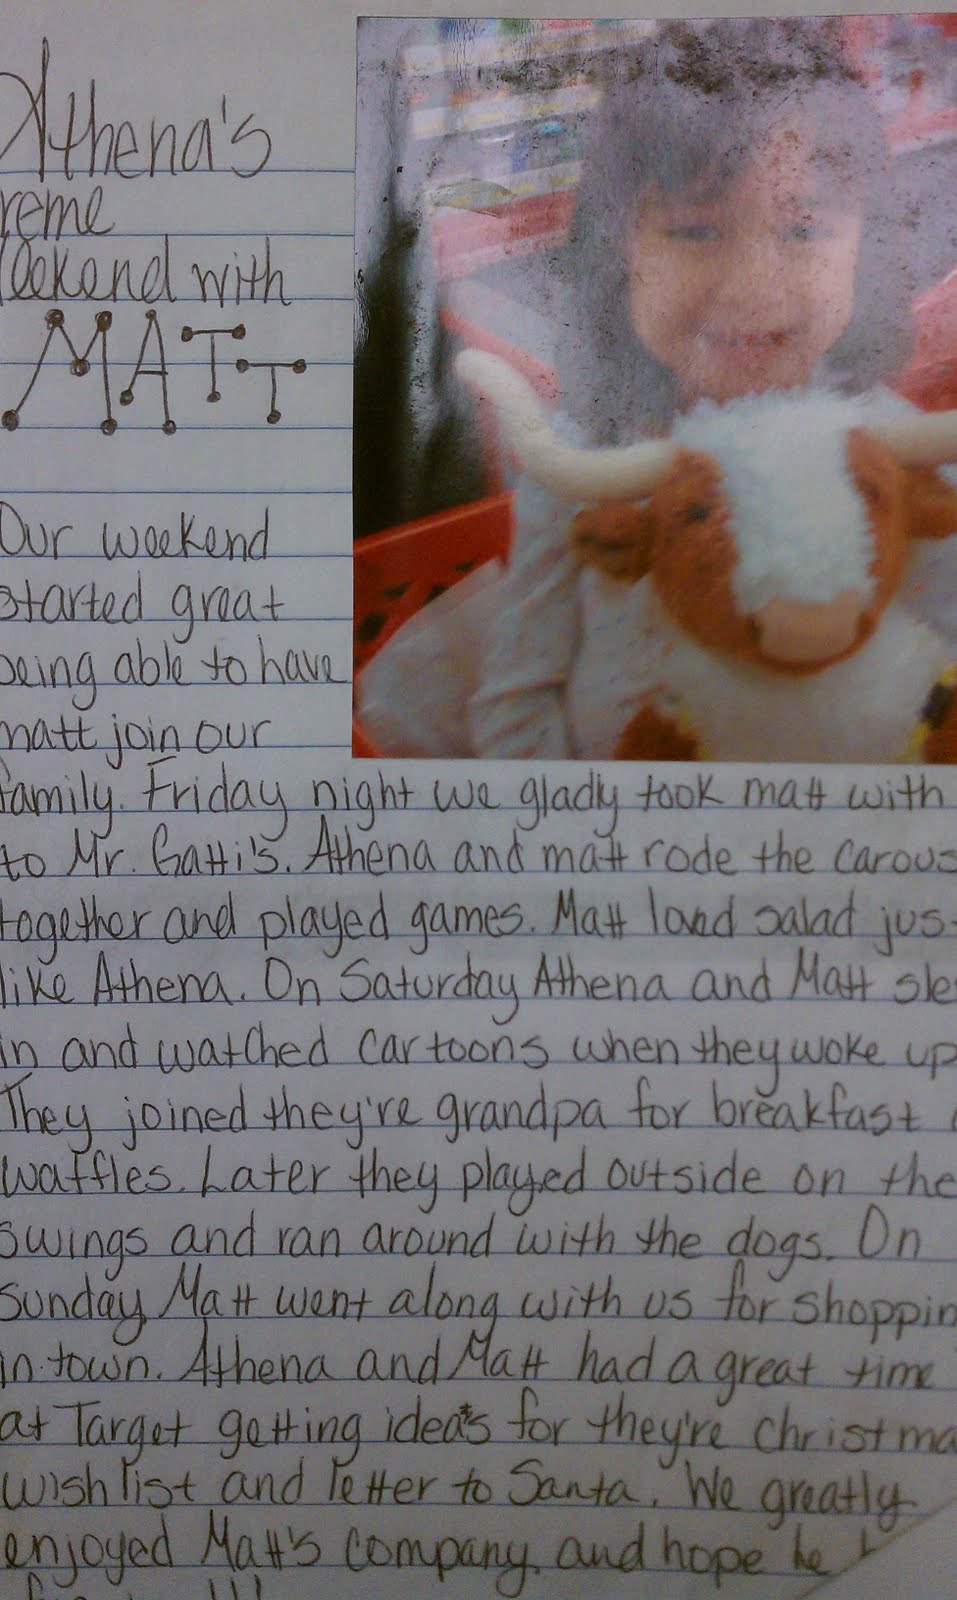 Athena's
reme
eekend with
MATT
Our weekend
started great
being able to have
matt join our
family. Friday night we gladly took matt with
to Mr. Gatti's. Athena and matt rode the carous
together and played games. Matt loved salad jus
like Athena. On Saturday Athena and Matt sle
in and watched cartoons when they woke up
They joined they're grandpa for breakfast
waffles. Later they played outside on the
swings and ran around with the dogs. On
Sunday Matt went along with us for shoppin
in town. Athena and Matt had a great time
at Target getting idea's for they're christma
wish list and letter to Santa. We greatly
enjoyed Matt's company, and hope he